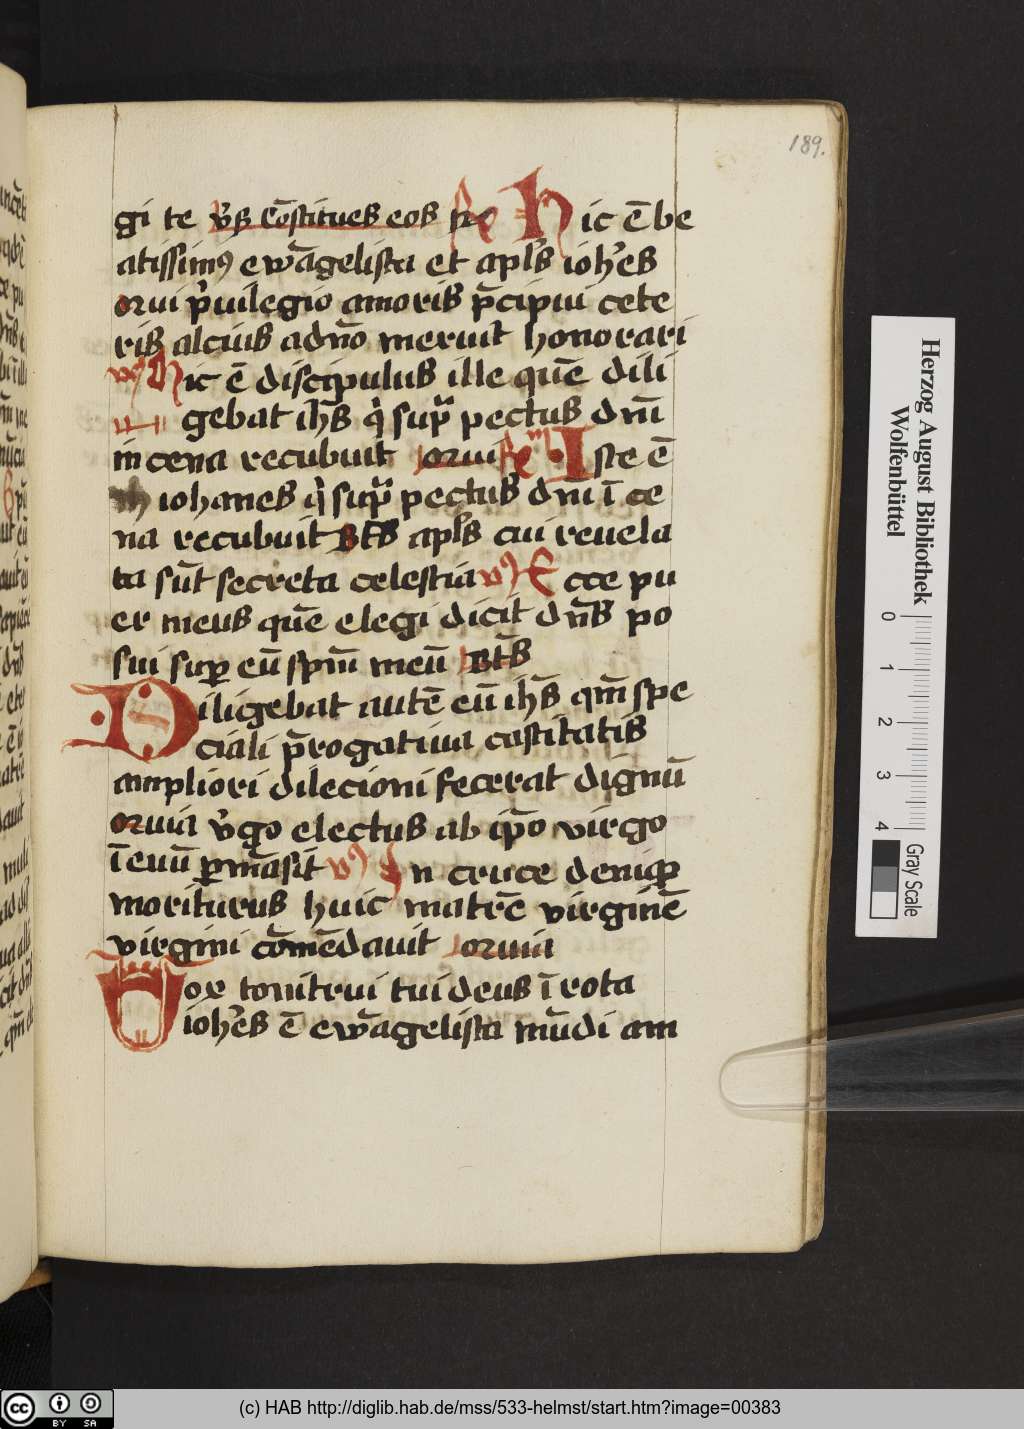 189.
gi te v̓s Cōstitues eos Re Hic ē be
atissimꝰ ewāgelista et apl̓s ioh̓es
Qui p̓uilegio amoris p̄cipui cete
ris alcius a dn̄o meruit honorari
vꝰ Hic ē discipulus ille quē dili
gebat ih̄s q̓ supᷓ pectus dn̄i
in cena recubuit Qui Rem Iste ē
iohanes q̓ supᷓ pectus dn̄i ī ce
na recubuit Bt̄s apl̓s cui reuela
ta sūt secreta celestia vꝰ Ecce pu
er meus quē elegi dicit dn̄s po
sui suꝑ eū spm̄ meū Bt̄s
Diligebat autē eū ih̄s qm̄ spe
ciali p̄rogatiua castitatis
ampliori dilecioni fecerat dignū
Quia v̓go electus ab ip̄o virgo
ī euū ꝑmāsit vꝰ In cruce deniqꝫ
moriturus huic matrē virginē
virgini cōmēdauit Quia
Vox tonitrui tui deus ī rota
ioh̓es ē ewāgelista mūdi am
Herzog August Bibliothek
Wolfenbüttel
0 1 2 3 4
Gray Scale
BY SA
(c) HAB http://diglib.hab.de/mss/533-helmst/start.htm?image=00383